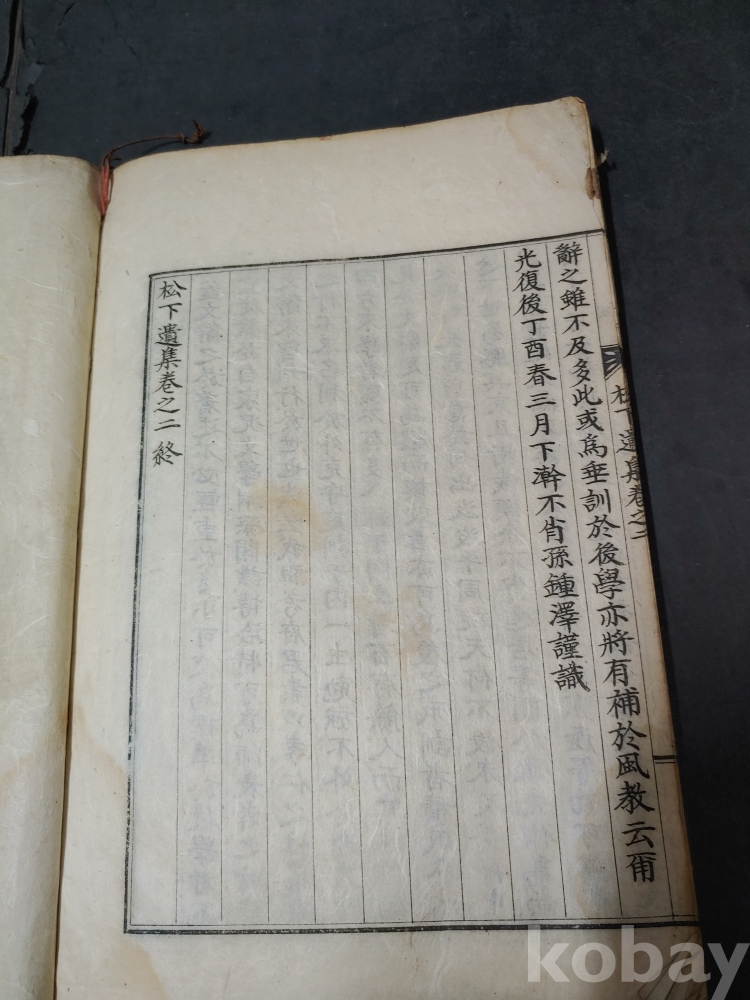 辭之雖不及多此或爲垂訓於後學亦將有補於風敎云爾
光復後丁酉春三月下澣不肖孫鍾澤謹識
松下遺集卷之二 終
松下遺集卷之二
kobay